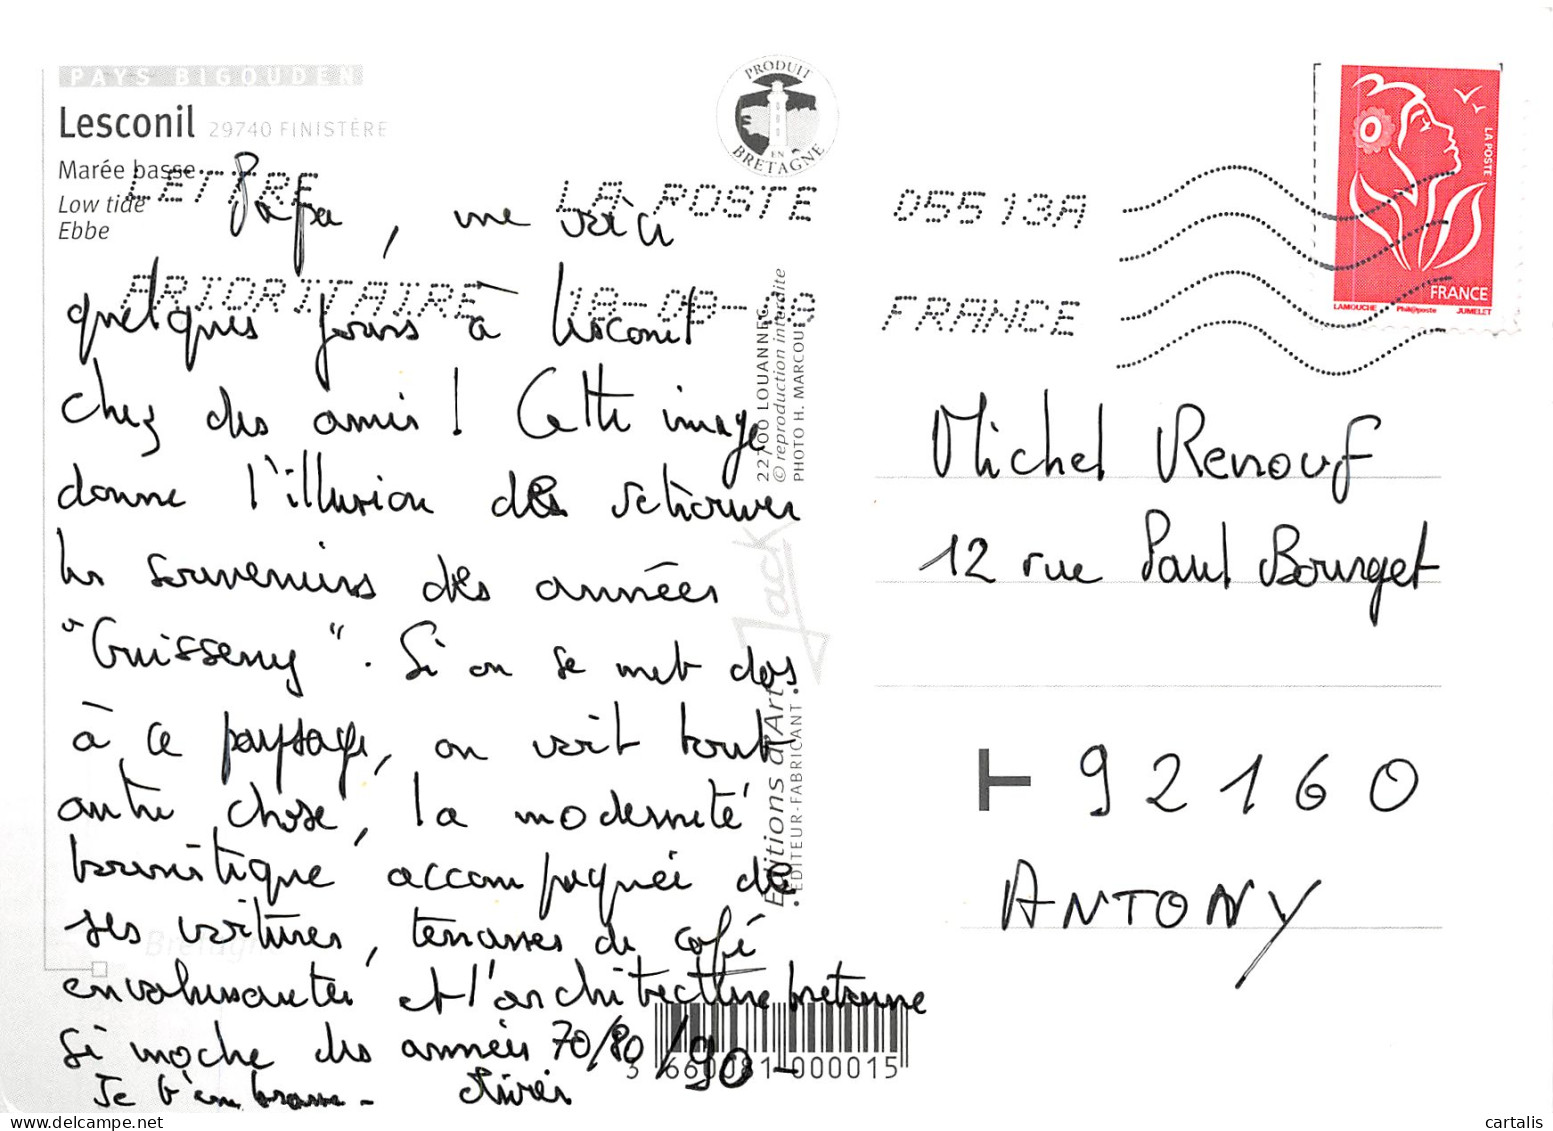 PAYS BIGOUDEN
Lesconil 29740 FINISTÈRE
Marée basse
Low tide
Ebbe
PRODUIT EN BRETAGNE
LETTRE
PRIORITAIRE
LA POSTE
18-08-
05513A
FRANCE
LA POSTE
FRANCE
LAMOUCHE Phil@poste JUMELET
Papa, me voici
quelques jours à Lesconil
chez des amis ! Cette image
donne l'illusion de retrouver
les souvenirs des années
"Guisseny". Si on se met dos
à ce paysage, on voit tout
autre chose, la modernité
touristique accompagnée de
ses voitures, terrasses de café
envahissantes et l'architecture bretonne
si moche des années 70/80/90 -
Je t'embrasse -
22700 LOUANNEC
© reproduction interdite
PHOTO H. MARCOU
Jack
Editions d'Art
EDITEUR-FABRICANT
Bretagne
3 660081 000015
Michel Renouf
12 rue Paul Bourget
T 92160
ANTONY
cartalis